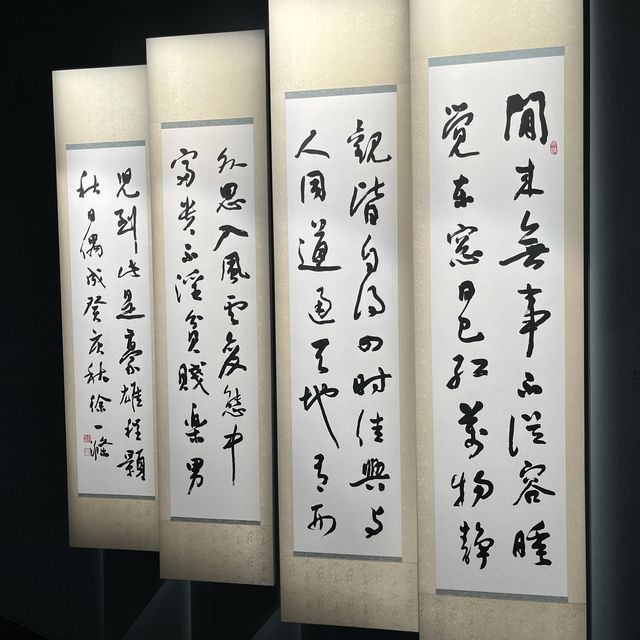 閒来無事不從容睡
觉东窓日已红萬物静
觀皆自得四时佳興与
人同道通天地有形
外思入風雲变態中
富贵不淫貧賤樂男
児到此是豪雄程顥
秋日偶成癸亥秋徐一